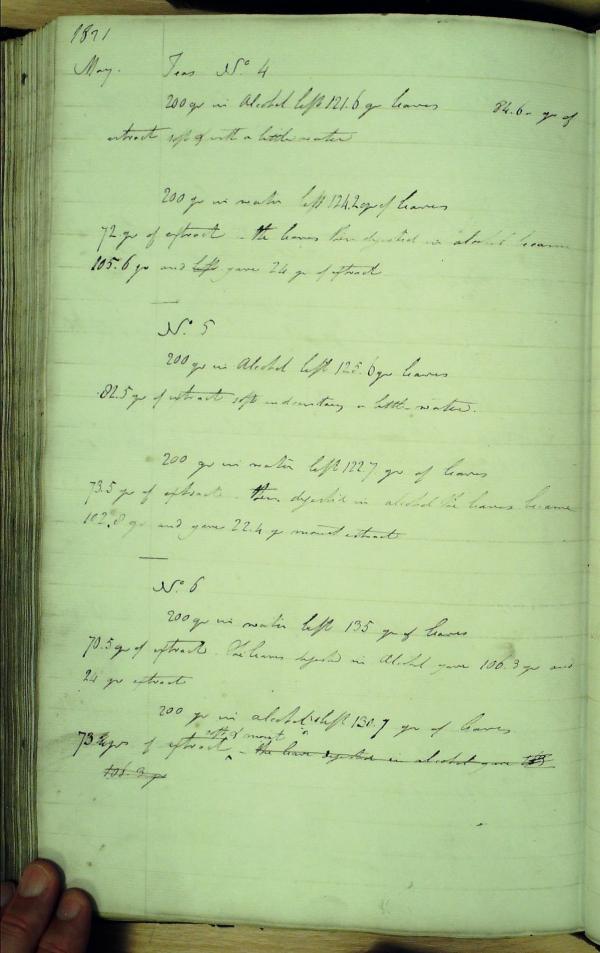 1821
May. Teas No. 4
200 gr in Alcohol left 121.6 gr leaves 84.6 - gr of
extract soft & with a little water
200 gr in water left 124.2 gr of leaves
72 gr of extract - the leaves then digested in alcohol became
105.6 gr and left gave 24 gr of extract
No. 5
200 gr in Alcohol left 125.6 gr leaves
82.5 gr of extract soft and a little water.
200 gr in water left 122.7 gr of leaves
73.5 gr of extract - then digested in alcohol the leaves became
102.8 gr and gave 22.4 gr moist extract
No. 6
200 gr in water left 135 gr of leaves
70.5 gr of extract. The leaves digested in Alcohol gave 106.3 gr and
24 gr extract
200 gr in alcohol left 130.7 gr of leaves
soft & moist
grs of extract - the leaves digested in alcohol gave
106.3 gr